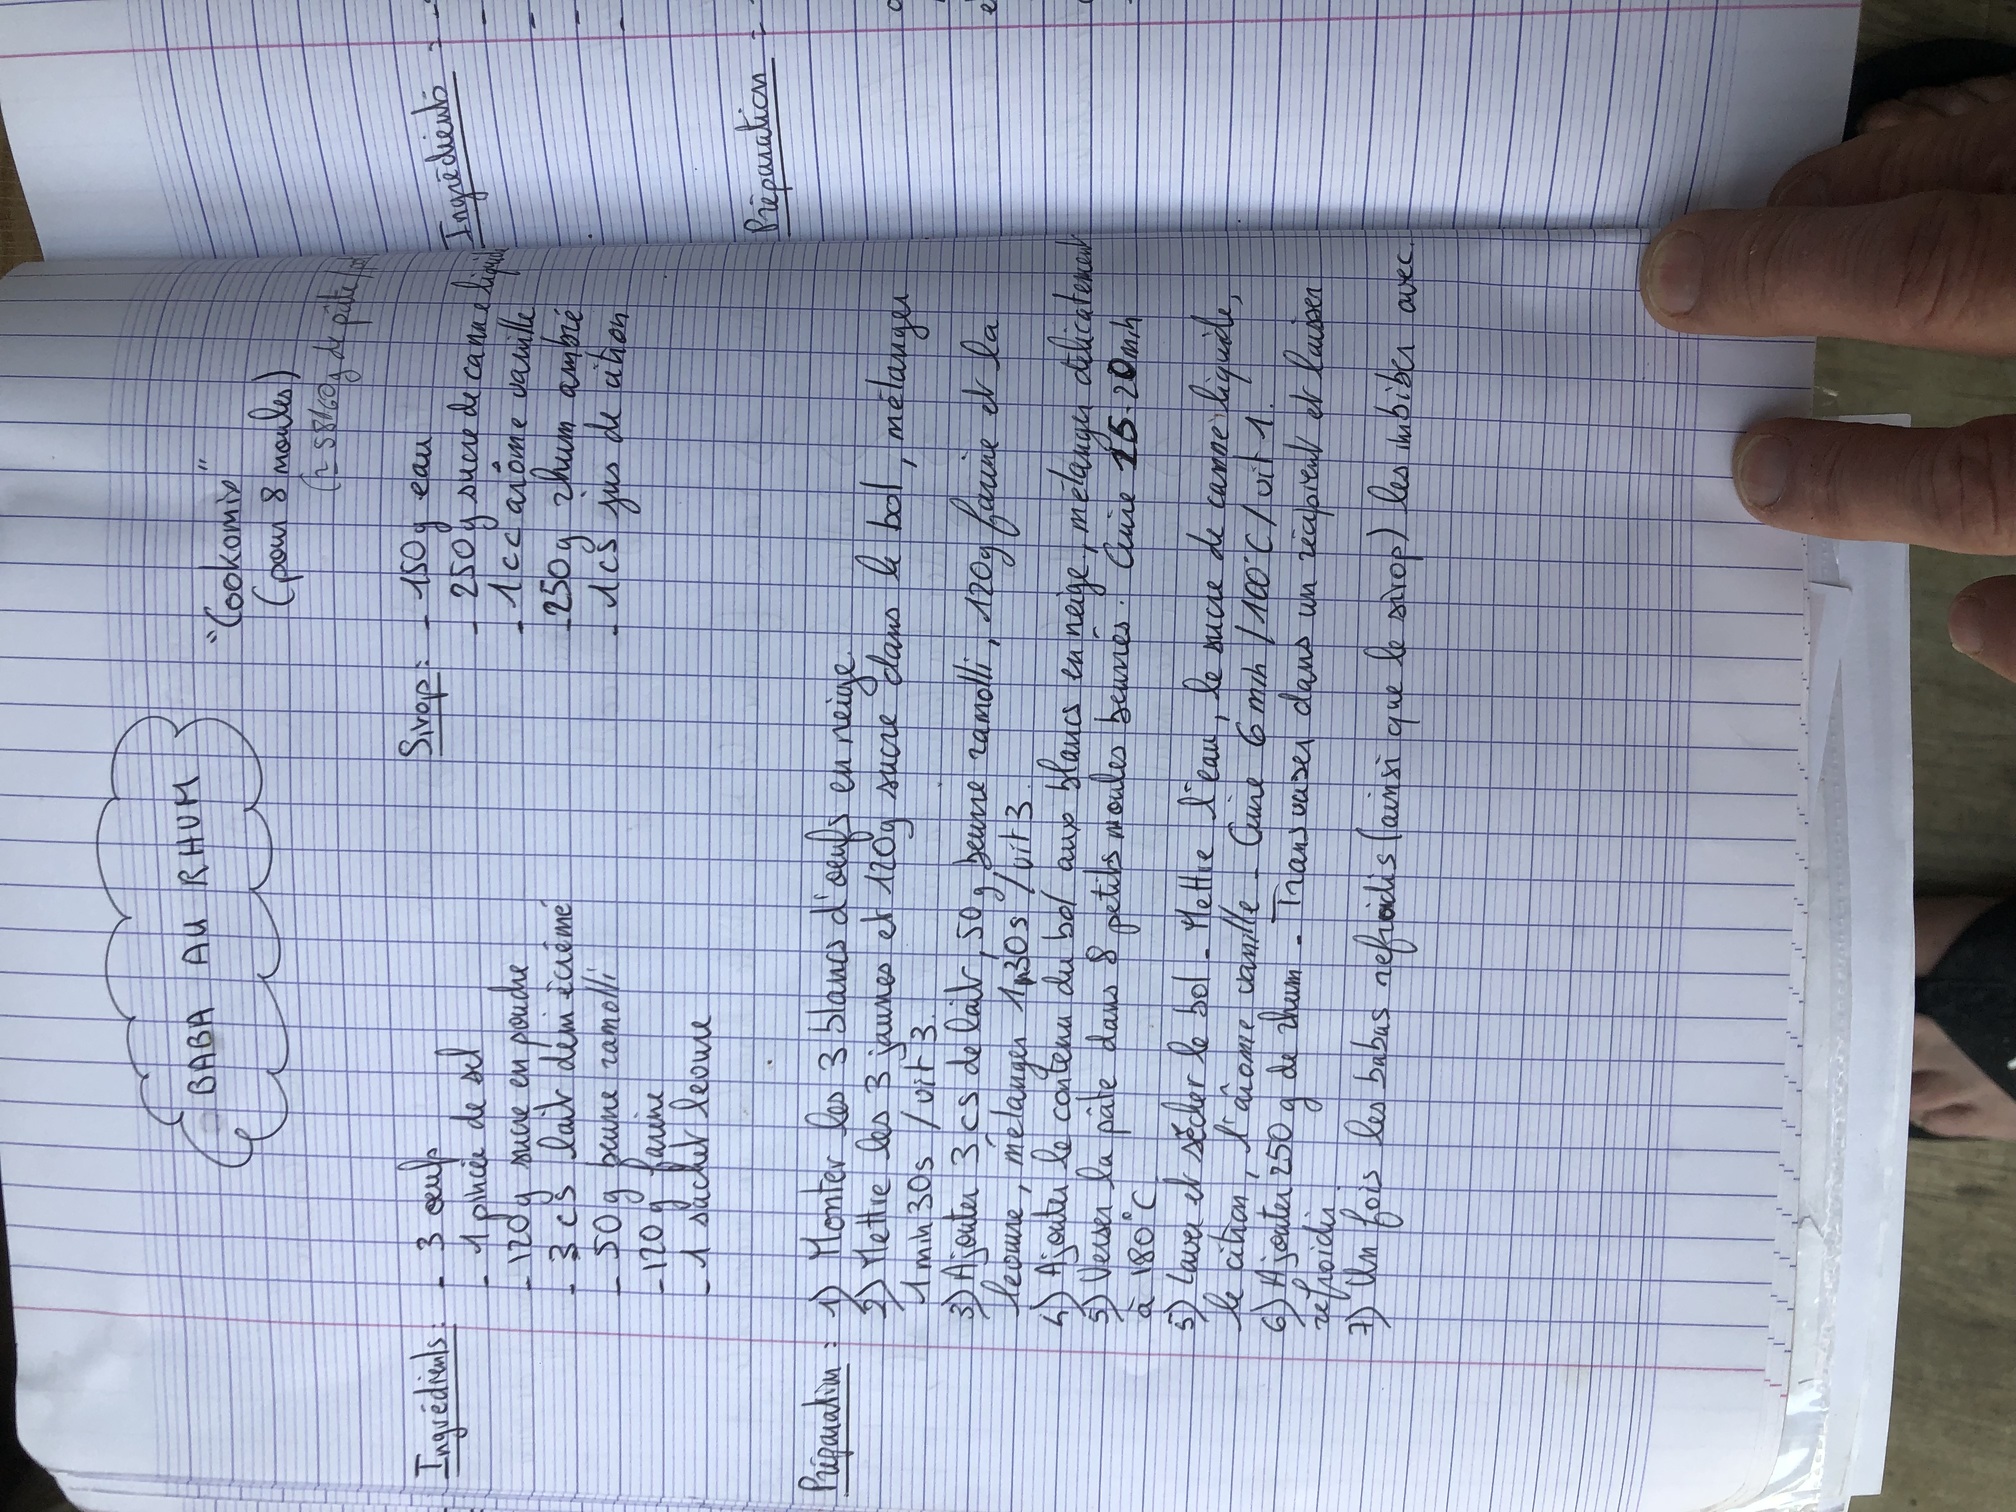 BABA AU RHUM
"Cookomix"
(pour 8 moules)
de pâte/
Ingrédients: - 3 oeufs
- 1 pincée de sel
- 120g sucre en poudre
- 3 cs lait demi écrémé
- 50g beurre ramolli
- 120g farine
- 1 sachet levure
Sirop: - 150g eau
- 250g sucre de canne liquide
- 1 cc arôme vanille
- 250g rhum ambré
- 1 cs jus de citron
Préparation: 1) Monter les 3 blancs d'oeufs en neige.
2) Mettre les 3 jaunes et 120g sucre dans le bol, mélanger
1 min 30s / vit 3.
3) Ajouter 3 cs de lait, 50g beurre ramolli, 120g farine et la
levure, mélanger 1m30s / vit 3.
4) Ajouter le contenu du bol aux blancs en neige, mélanger délicatement
5) Verser la pâte dans 8 petits moules beurrés. Cuire 15-20 min
à 180°C.
5) Laver et sécher le bol - Mettre l'eau, le sucre de canne liquide,
le citron, l'arôme vanille - Cuire 6 min / 100°C / vit 1.
6) Ajouter 250g de rhum - Transvaser dans un récipient et laisser
refroidir.
7) Un fois les babas refroidis (ainsi que le sirop) les imbiber avec.
Ingrédients: -
Préparation: -